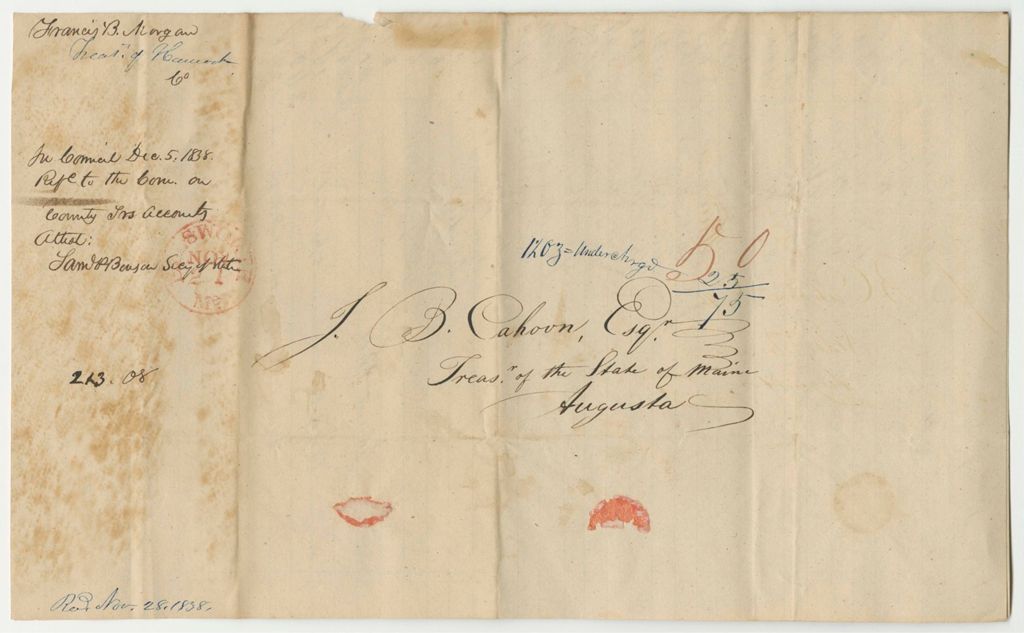 Francis B. Morgan
Treasr. of Hancock
Co
In Council Dec. 5. 1838.
Refd to the Com. on
County Trs Accounts
Attest:
Saml P Benson Secy of State
213. 08
Recd. Nov. 28. 1838.
NOV
Me.
12 oz = Underchrgd
50
25
75
J. B. Cahoon, Esqr.
Treasr. of the State of Maine
Augusta